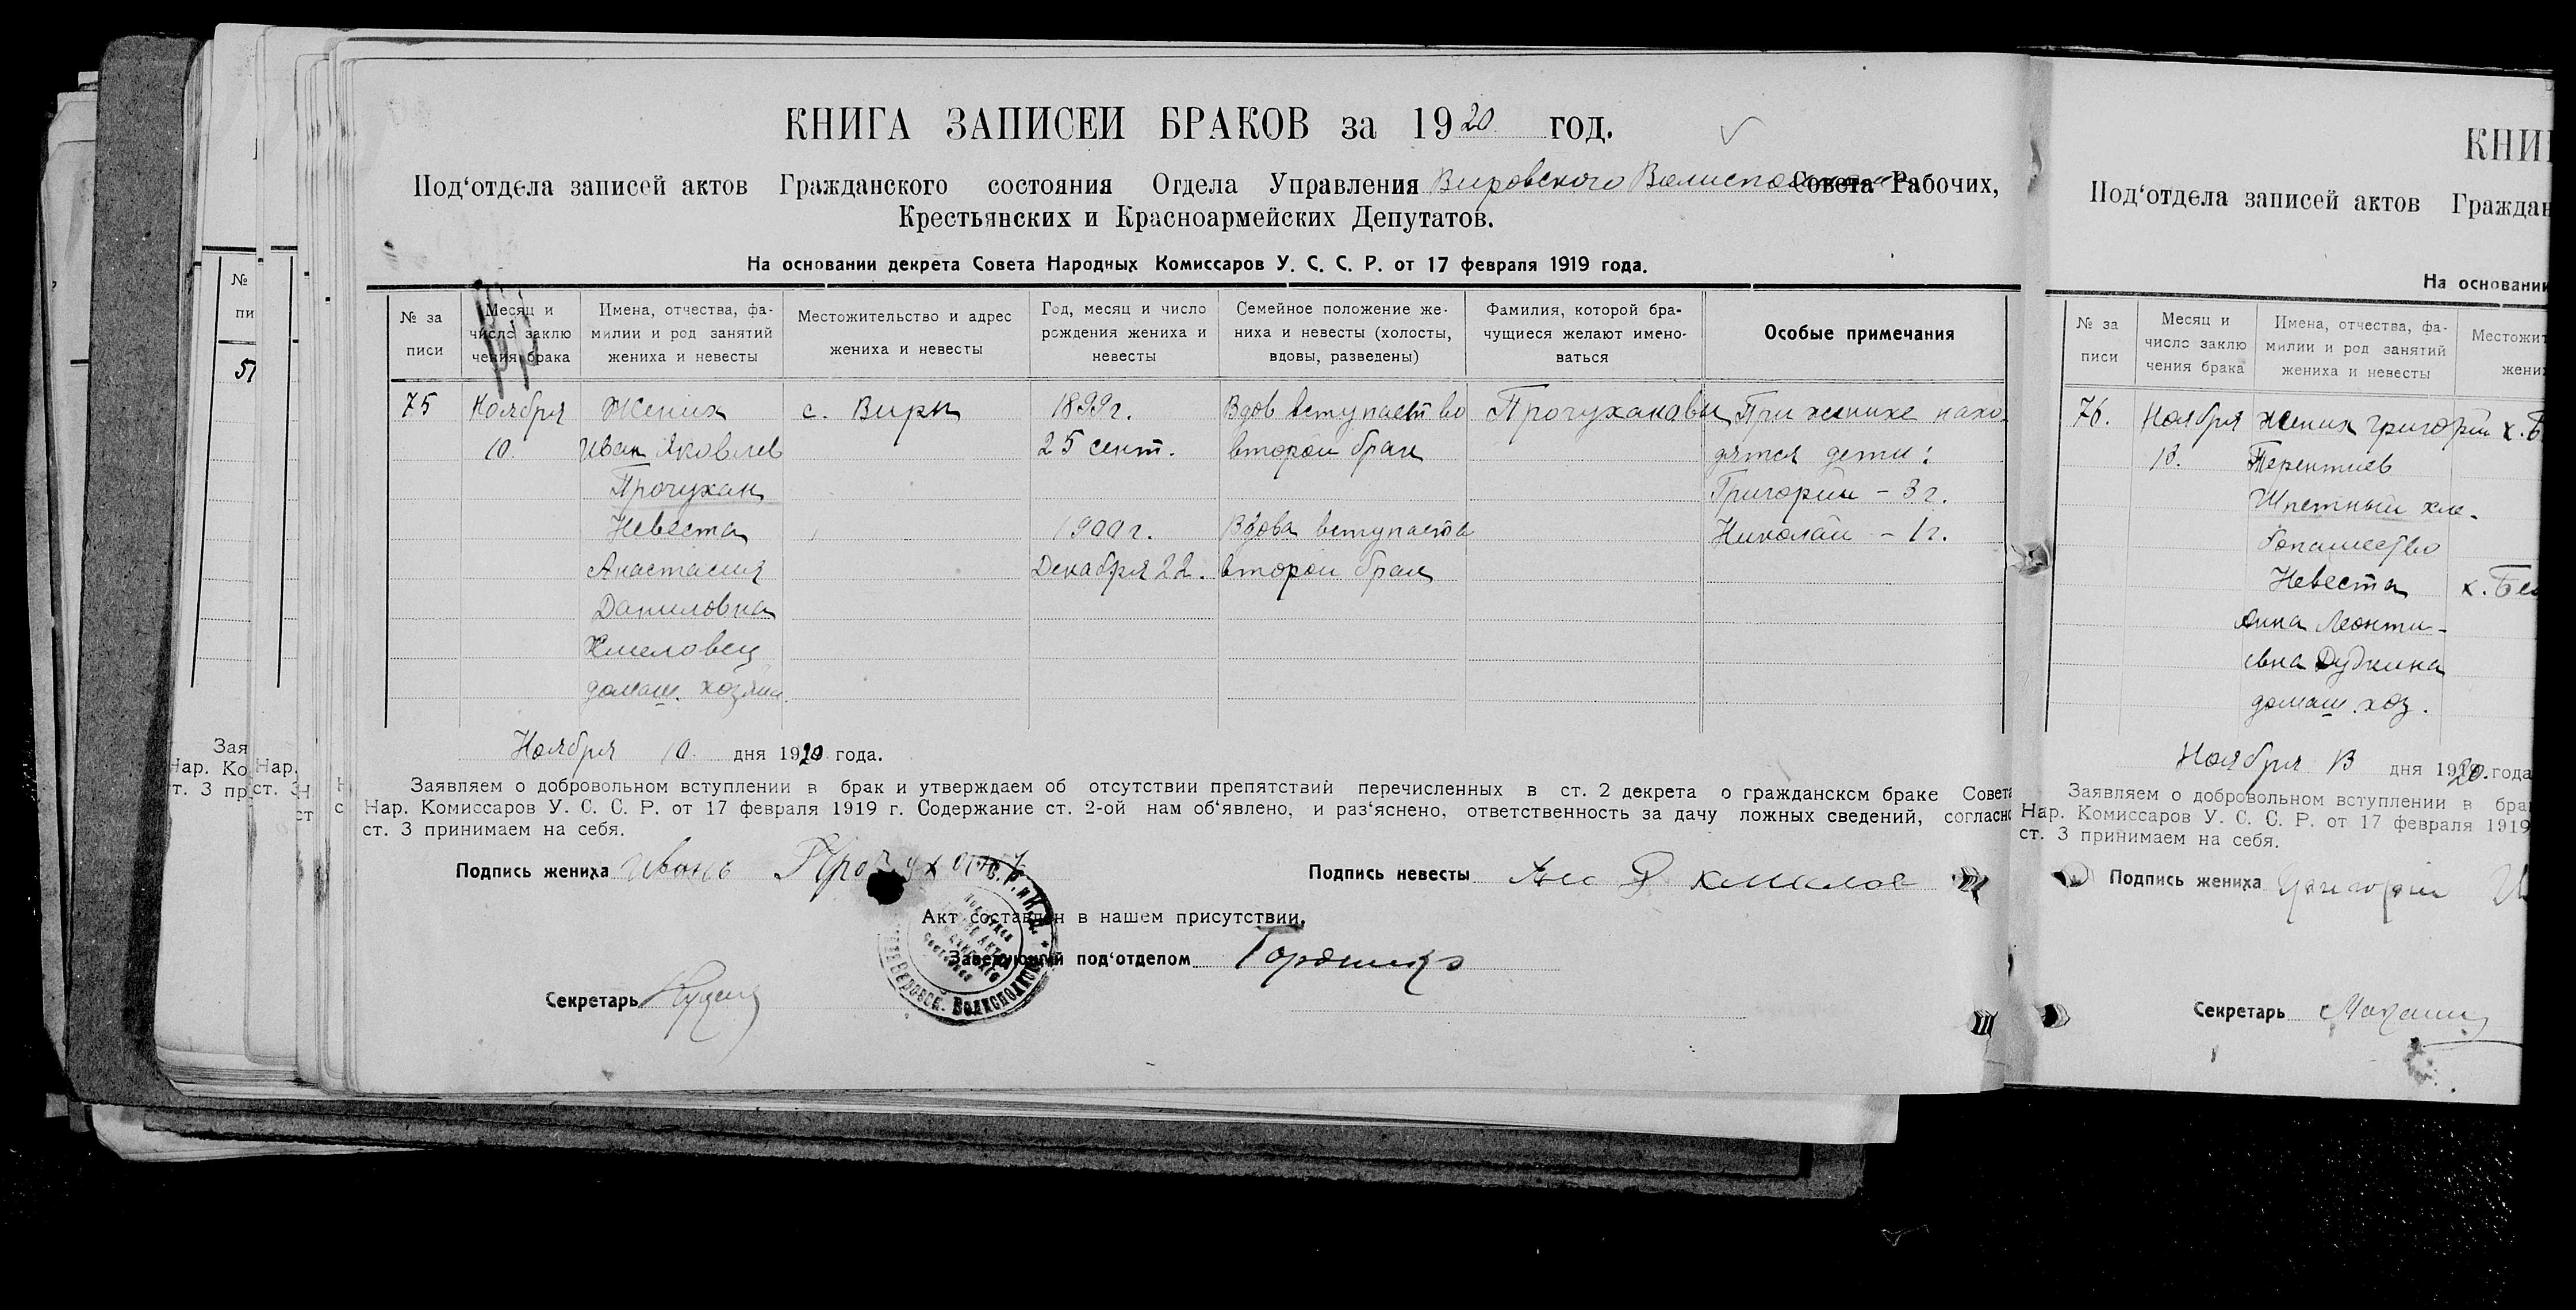 КНИГА ЗАПИСЕЙ БРАКОВ за 1920 год.
Под‘отдела записей актов Гражданского состояния Отдела Управления Вировского Волисполкома Совета Рабочих,
Крестьянских и Красноармейских Депутатов.
На основании декрета Совета Народных Комиссаров У. С. С. Р. от 17 февраля 1919 года.
№ за писи
Месяц и число заклю чения брака
Имена, отчества, фа- милии и род занятий жениха и невесты
Местожительство и адрес жениха и невесты
Год, месяц и число рождения жениха и невесты
Семейное положение же- ниха и невесты (холосты, вдовы, разведены)
Фамилия, которой бра- чущиеся желают имено- ваться
Особые примечания
75 Ноября Жених с. Виры 1899 г. Вдов вступает во При женихе нахо-
10. Иван Яковлев 25 сент. второй брак дятся дети:
Прочухан Григорий - 3 г.
Невеста 1900 г. Вдова вступает в Николай - 1 г.
Анастасия Декабря 22. второй брак
Даниловна
Хмеловец
домаш. хозяй.
Ноября 10 дня 1920 года.
Заявляем о добровольном вступлении в брак и утверждаем об отсутствии препятствий перечисленных в ст. 2 декрета о гражданском браке Совета
Нар. Комиссаров У. С. С. Р. от 17 февраля 1919 г. Содержание ст. 2-ой нам об‘явлено, и раз‘яснено, ответственность за дачу ложных сведений, согласно
ст. 3 принимаем на себя.
Подпись жениха Иванъ Прочухан
Подпись невесты
Акт составлен в нашем присутствии.
Заведующий под‘отделом
Секретарь
КНИ
Под‘отдела записей актов Граждан
На основании
№ за писи
Месяц и число заклю чения брака
Имена, отчества, фа- милии и род занятий жениха и невесты
Местожит жени
76. Ноября Жених Григорий х. Б
13. Терентиев
Шпетный хле-
бопашество
Невеста х. Бе
Анна Леонти-
евна Дудкина
домаш. хоз.
Ноября 13 дня 1920. года
Заявляем о добровольном вступлении в бра
Нар. Комиссаров У. С. С. Р. от 17 февраля 1919
ст. 3 принимаем на себя.
Подпись жениха Григорий
Секретарь
№
пи
51
Зая
Нар. Ко
ст. 3 пр
Нар.
ст. 3